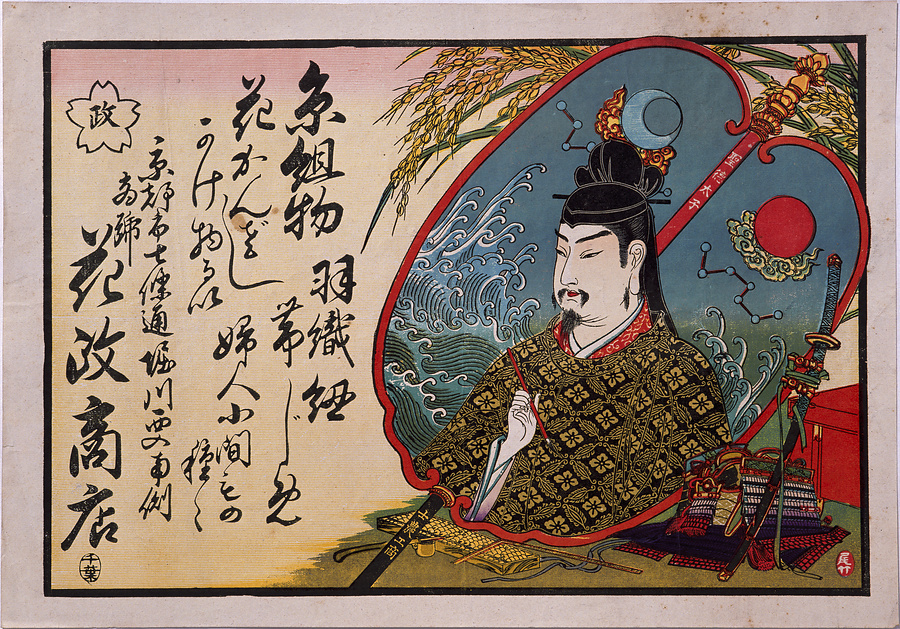 聖徳太子
糸組物 羽織紐
花かんざし 帯じめ
かけ物るい 婦人小間もの
種々
京都市七條通堀川西入南側
花政商店
政
千葉
尾竹